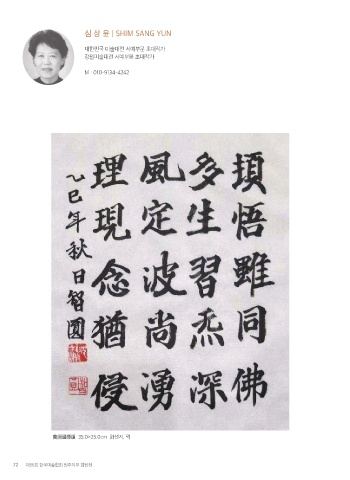 심 상 윤 | SHIM SANG YUN
대한민국 미술대전 서예부문 초대작가
강원미술대전 서예부문 초대작가
M 010-9134-4242
頊悟雖同佛
多生習炁深
風定波尚湧
理現念猶侵
乙巳年秋日智圓
35.0×25.0cm 화선지, 먹
72